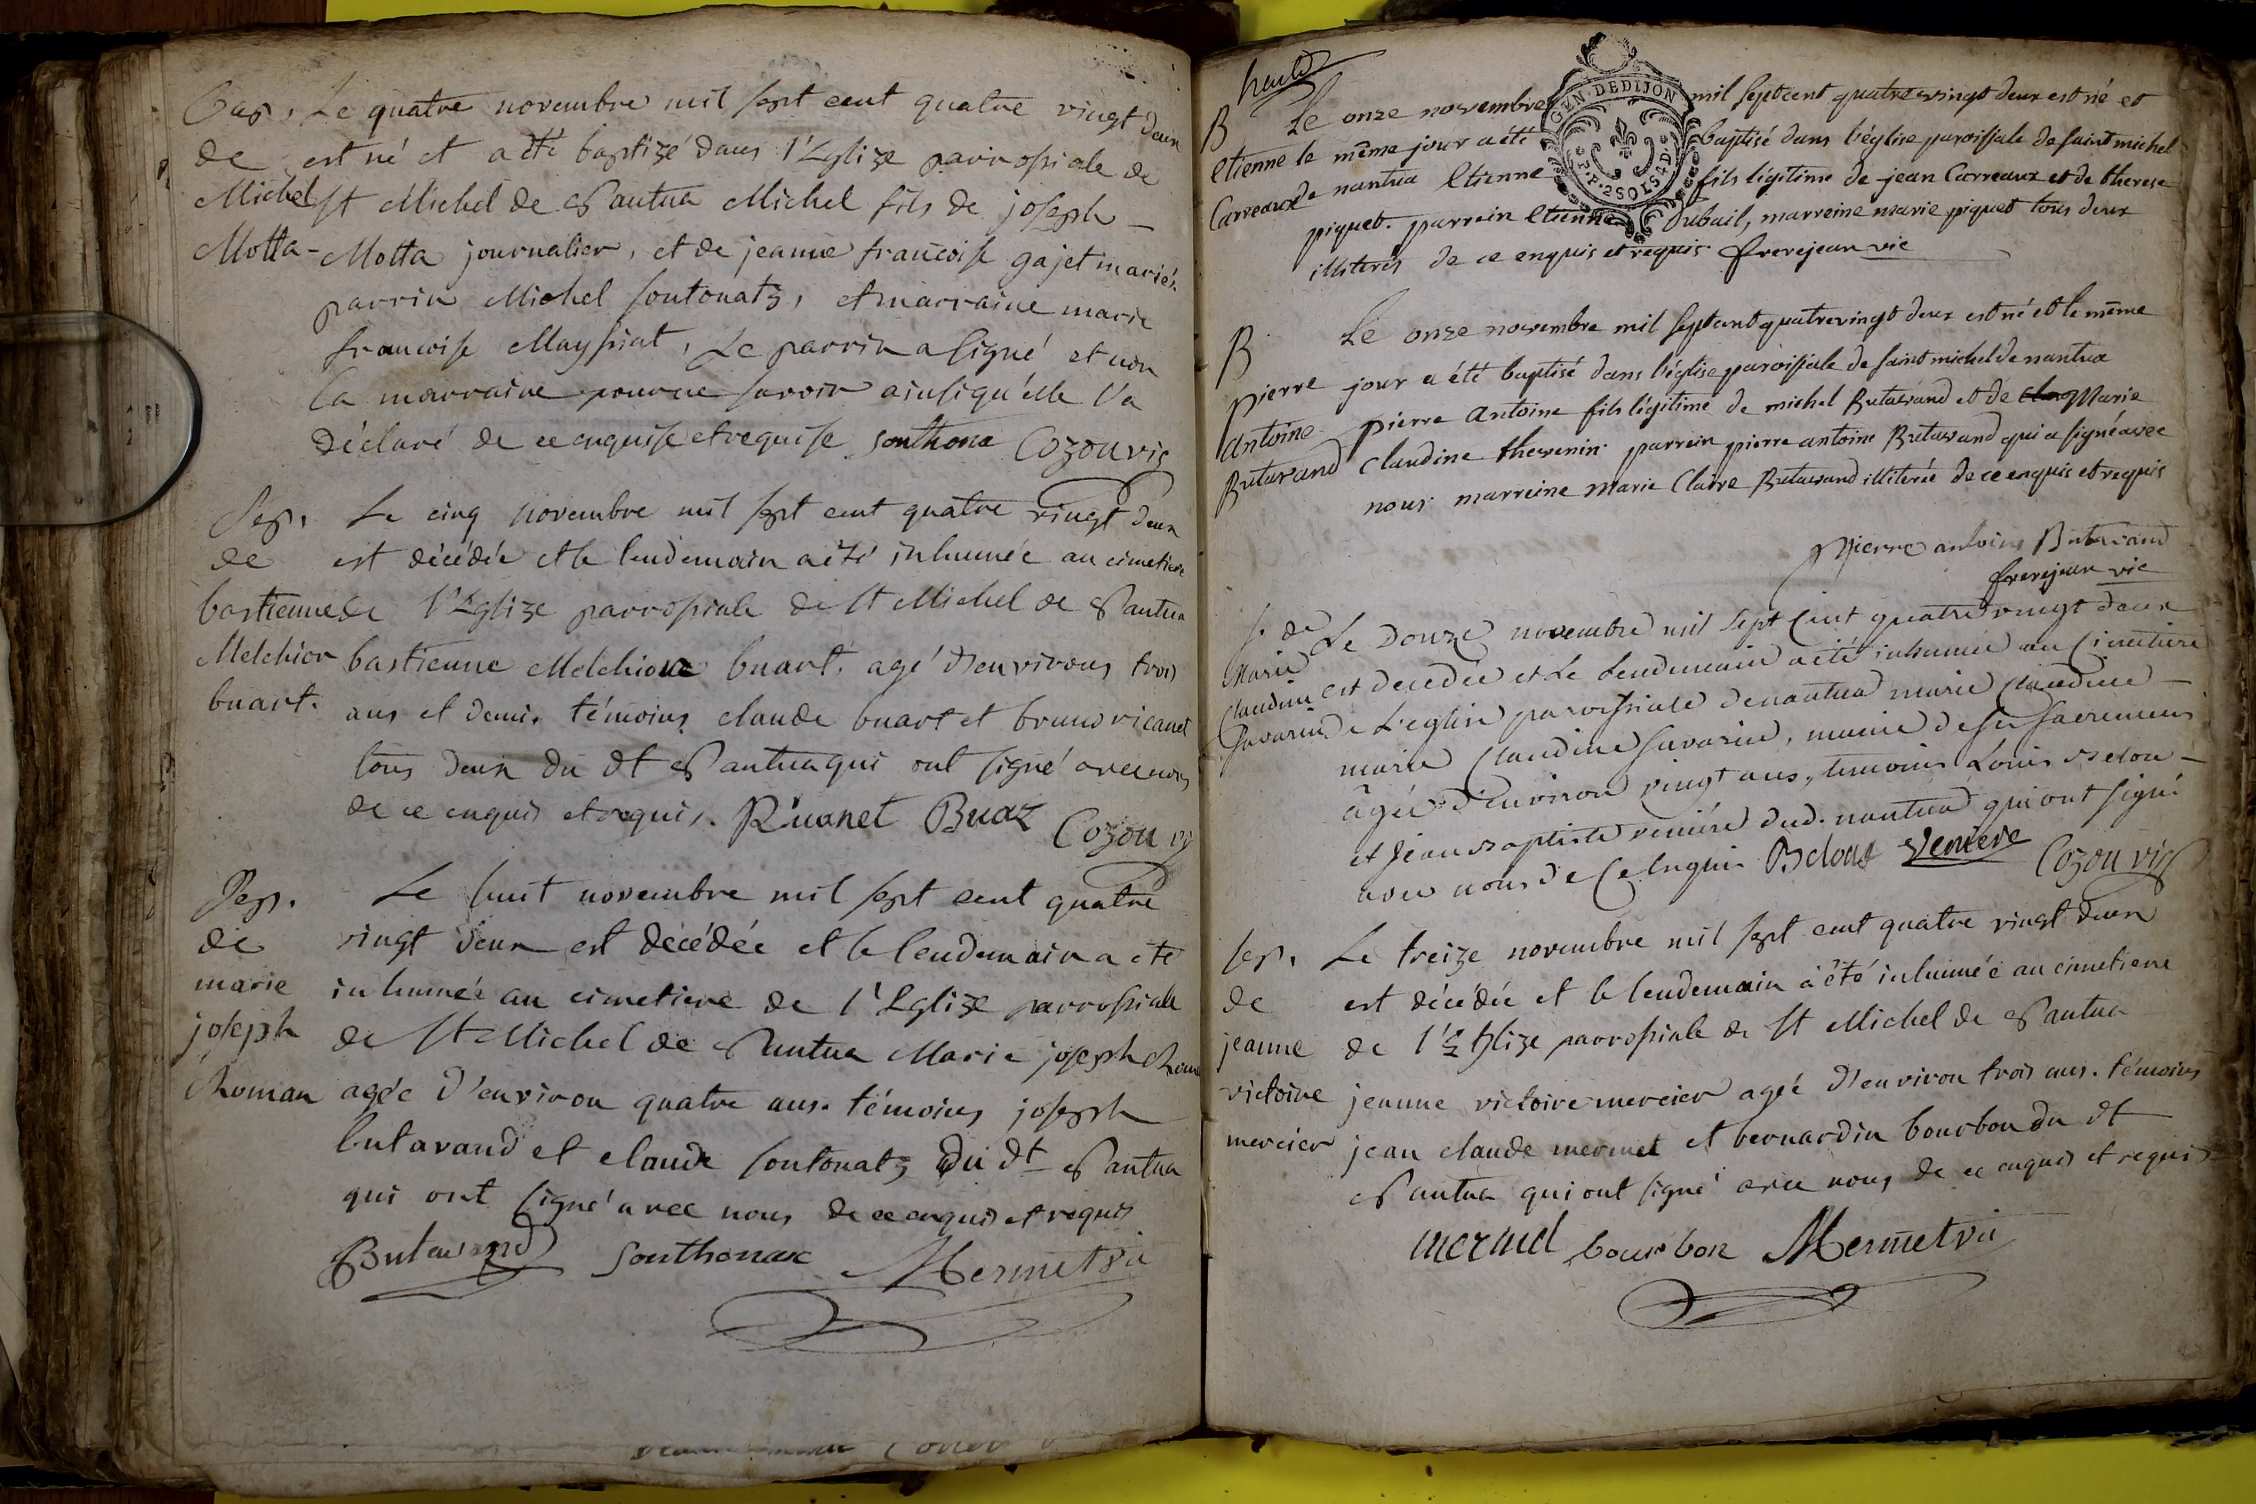 Bap. Le quatre novembre mil sept cent quatre vingt deux
de est né et a été baptizé dans l'Eglize parrossiale de
Michel St Michel de Nantua Michel fils de joseph
Motta - Motta journalier, et de jeanne francoise gajet mariés
parrin Michel sontonatz, et marraine marie
francoise Mayssiat, Le parrin a signé et non
la marraine pour ne savoir ainsi qu'elle l'a
déclaré de ce enquise et requise Sonthona Cozon vic
Sep. Le cinq novembre mil sept cent quatre vingt deux
de est décédée et le lendemain a été inhumée au cimetiere
bastienne de l'Eglize parrossiale de St Michel de Nantua
Melchior bastienne Melchiore buart, agé d'environs trois
buart. ans et demi. témoins claude buart et bruno ricanet
tous deux du dt Nantua qui ont signé avec nous
de ce enquis et requis. Ricanet Buaz Cozon vic
Sep. Le huit novembre mil sept cent quatre
de vingt deux est décédée et le lendemain a été
marie inhumée au cimetiere de l'Eglize parrossiale
joseph de St Michel de Nantua Marie joseph
Roman agée d'environ quatre ans. témoins joseph
butavand et claude sontonatz du dt Nantua
qui ont signé avec nous de ce enquis et requis
Butavand Sonthonax Mermet vic
huit
B Le onze novembre mil sept cent quatre vingt deux est né et
Etienne le même jour a été baptisé dans l'église paroissiale de saint michel
Carreaux de nantua Etienne fils légitime de jean Carreaux et de therese
piquet. parrein Etienne Dubail, marreine marie piquet tous deux
illiterés de ce enquis et requis. frerejean vic
GEN. DE DIJON
2 SOLS 4 D
B Le onze novembre mil sept cent quatre vingt deux est né et le même
pierre jour a été baptisé dans l'église paroissiale de saint michel de nantua
antoine pierre antoine fils légitime de michel Butavand et de Marie
Butavand Claudine thevenin. parrein pierre antoine Butavand qui a signé avec
nous. marreine Marie Claire Butavand illiterée de ce enquis et requis
Pierre antoine Butavand
frerejean vic
S. de Le Douze novembre mil sept cent quatre vingt deux
Marie est decedée et Le Lendemain a été inhumée au Cimetiere
Claudine
Savarin de L'eglise paroissiale de nantua marie claudine
marie Claudine Savarin, munie de ses sacremens
âgée d'environ vingt ans, temoins Louis Belon
et Jean Baptiste veniére dud. nantua qui ont signé
avec nous de Ce Enquis Belond Veniere Cozon vic
Sep. Le treize novembre mil sept cent quatre vingt deux
de est décédée et le lendemain a été inhumée au cimetiere
jeanne de l'Eglize parrossiale de St Michel de Nantua
victoire jeanne victoire mercier agée d'environ trois ans. témoins
mercier jean claude mermet et bernardin bourbon du dt
Nantua qui ont signé avec nous de ce enquis et requis
mermet bourbon Mermet vic